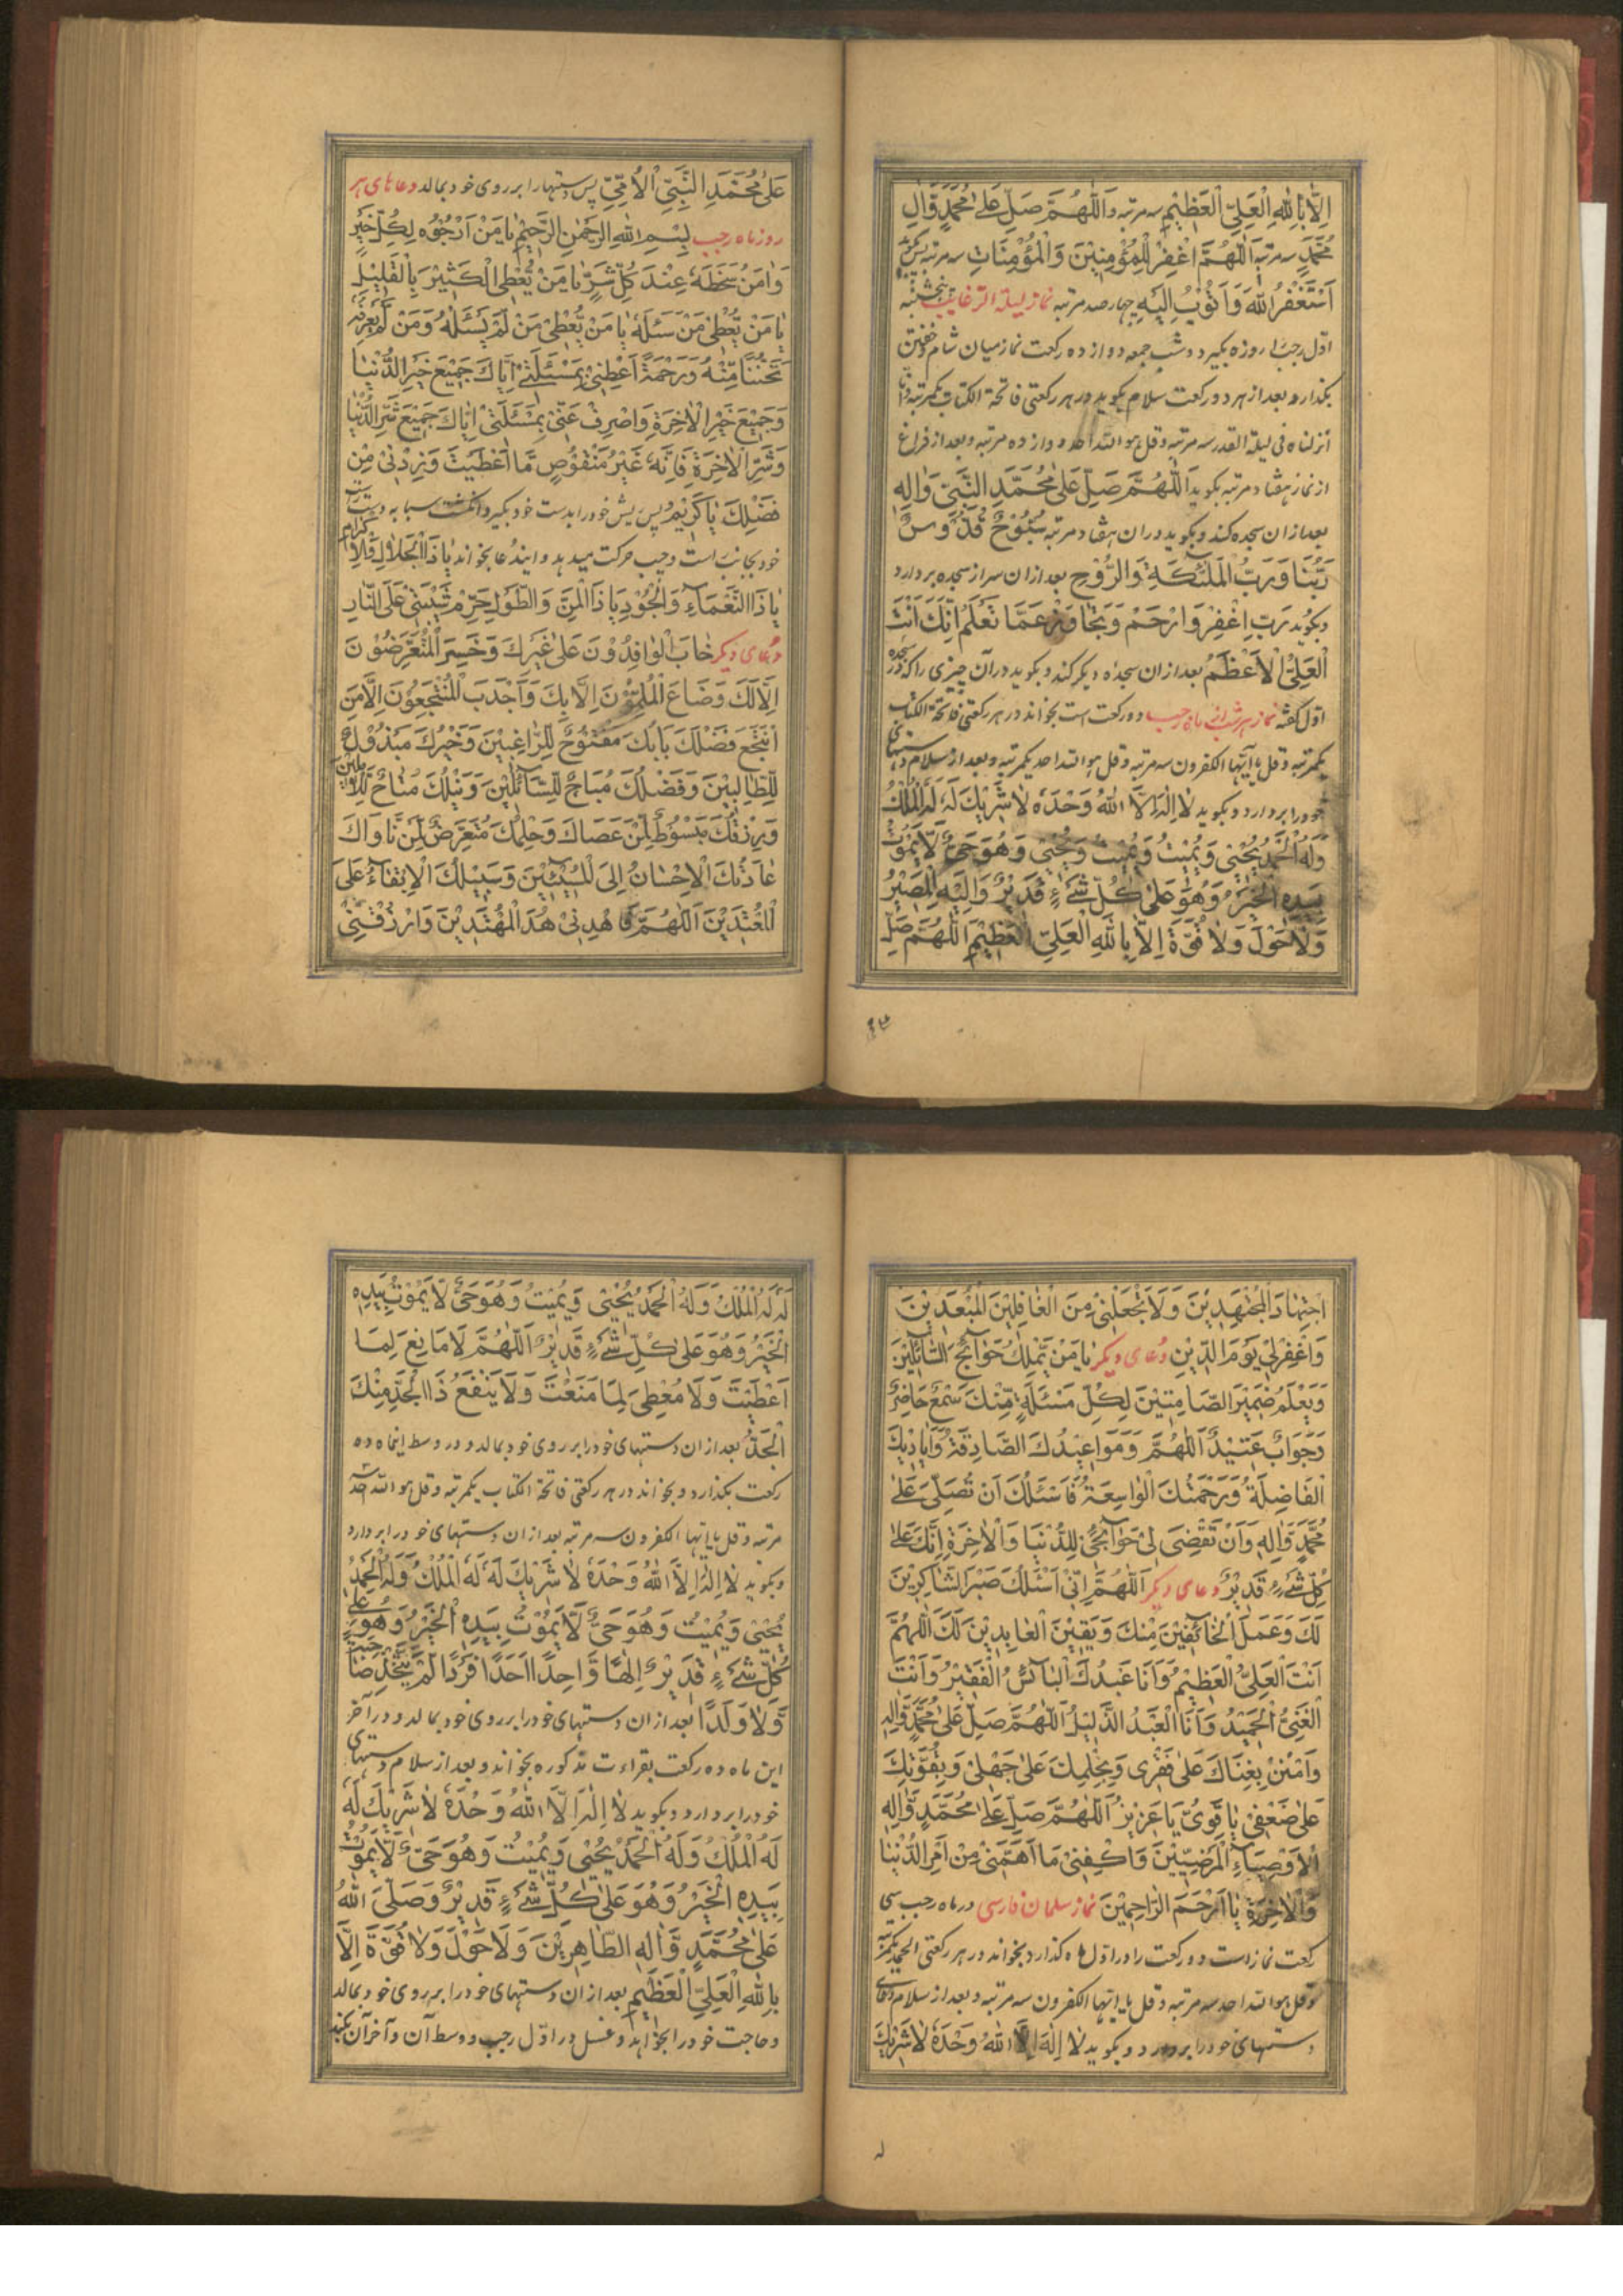 اِلّا بِاللهِ الْعَلِیِّ الْعَظِیْمِ سه مرتبه وَ اَللّٰهُمَّ صَلِّ عَلٰی مُحَمَّدٍ وَّاٰلِ
مُحَمَّدٍ سه مرتبه اَللّٰهُمَّ اغْفِرْ لِلْمُؤْمِنِیْنَ وَالْمُؤْمِنَاتِ سه مرتبه پس بگوید
اَسْتَغْفِرُ اللهَ وَاَتُوْبُ اِلَیْهِ چهارصد مرتبه نماز لیلة الرغایب پنجشنبه
اول رجب را روزه بگیرد و شب جمعه دوازده رکعت نماز میان شام و خفتن
بگذارد و بعد از هر دو رکعت سلام بگوید در هر رکعتی فاتحة الکتاب یکمرتبه و انا
انزلناه فی لیلة القدر سه مرتبه و قل هو الله احد دوازده مرتبه و بعد از فراغ
از نماز هفتاد مرتبه بگوید اَللّٰهُمَّ صَلِّ عَلٰی مُحَمَّدِ النَّبِیِّ وَاٰلِهٖ
بعد از ان سجده کند و بگوید در ان هفتاد مرتبه سُبُّوْحٌ قُدُّوْسٌ
رَبُّنَا وَرَبُّ الْمَلٰئِکَةِ وَالرُّوْحِ بعد از ان سر از سجده بردارد
و بگوید رَبِّ اِغْفِرْ وَارْحَمْ وَتَجَاوَزْ عَمَّا تَعْلَمُ اِنَّكَ اَنْتَ
الْعَلِیُّ الْاَعْظَمُ بعد از ان سجده دیگر کند و بگوید در آن چیزی را که در سجده
اول گفته نماز هر شب از ماه رجب دو رکعت است بخواند در هر رکعتی فاتحة الکتاب
یکمرتبه و قل یا ایها الکفرون سه مرتبه و قل هو الله احد یکمرتبه و بعد از سلام دستهای
خود را بردارد و بگوید لَا اِلٰهَ اِلَّا اللهُ وَحْدَهٗ لَا شَرِیْكَ لَهٗ لَهُ الْمُلْكُ
وَلَهُ الْحَمْدُ یُحْیِیْ وَیُمِیْتُ وَیُمِیْتُ وَیُحْیِیْ وَهُوَ حَیٌّ لَا یَمُوْتُ
بِیَدِهِ الْخَیْرُ وَهُوَ عَلٰی کُلِّ شَیْءٍ قَدِیْرٌ وَاِلَیْهِ الْمَصِیْرُ
وَلَا حَوْلَ وَلَا قُوَّةَ اِلَّا بِاللهِ الْعَلِیِّ الْعَظِیْمِ اَللّٰهُمَّ صَلِّ
عَلٰی مُحَمَّدِ النَّبِیِّ الْاُمِّیِّ پس دستها را بر روی خود بمالد دعاهای هر
روز ماه رجب بِسْمِ اللهِ الرَّحْمٰنِ الرَّحِیْمِ یَا مَنْ اَرْجُوْهُ لِکُلِّ خَیْرٍ
وَاٰمَنُ سَخَطَهٗ عِنْدَ کُلِّ شَرٍّ یَا مَنْ یُّعْطِی الْکَثِیْرَ بِالْقَلِیْلِ
یَا مَنْ یُّعْطِیْ مَنْ سَئَلَهٗ یَا مَنْ یُّعْطِیْ مَنْ لَمْ یَسْئَلْهُ وَمَنْ لَمْ یَعْرِفْهُ
تَحَنُّنًا مِّنْهُ وَرَحْمَةً اَعْطِنِیْ بِمَسْئَلَتِیْ اِیَّاكَ جَمِیْعَ خَیْرِ الدُّنْیَا
وَجَمِیْعَ خَیْرِ الْاٰخِرَةِ وَاصْرِفْ عَنِّیْ بِمَسْئَلَتِیْ اِیَّاكَ جَمِیْعَ شَرِّ الدُّنْیَا
وَشَرِّ الْاٰخِرَةِ فَاِنَّهٗ غَیْرُ مَنْقُوْصٍ مَّا اَعْطَیْتَ وَزِدْنِیْ مِنْ
فَضْلِكَ یَا کَرِیْمُ پس ریش خود را بدست خود بگیرد و انگشت سبابه دست راست
خود بجانب راست و چپ حرکت میدهد و ایندعا بخواند یَا ذَا الْجَلَالِ وَالْاِکْرَامِ
یَا ذَا النَّعْمَاءِ وَالْجُوْدِ یَا ذَا الْمَنِّ وَالطَّوْلِ حَرِّمْ شَیْبَتِیْ عَلَی النَّارِ
دعای دیگر خَابَ الْوَافِدُوْنَ عَلٰی غَیْرِكَ وَخَسِرَ الْمُتَعَرِّضُوْنَ
اِلَّا لَكَ وَضَاعَ الْمُلِمُّوْنَ اِلَّا بِكَ وَاَجْدَبَ الْمُنْتَجِعُوْنَ اِلَّا مَنِ
انْتَجَعَ فَضْلَكَ بَابُكَ مَفْتُوْحٌ لِّلرَّاغِبِیْنَ وَخَیْرُكَ مَبْذُوْلٌ
لِّلطَّالِبِیْنَ وَفَضْلُكَ مُبَاحٌ لِّلسَّائِلِیْنَ وَنَیْلُكَ مُتَاحٌ لِّلْاٰمِلِیْنَ
وَرِزْقُكَ مَبْسُوْطٌ لِّمَنْ عَصَاكَ وَحِلْمُكَ مُتَعَرِّضٌ لِّمَنْ نَّاوَاكَ
عَادَتُكَ الْاِحْسَانُ اِلَی الْمُسِیْئِیْنَ وَسَبِیْلُكَ الْاِبْقَاءُ عَلَی
الْمُعْتَدِیْنَ اَللّٰهُمَّ فَاهْدِنِیْ هُدَی الْمُهْتَدِیْنَ وَارْزُقْنِیْ
اجْتِهَادَ الْمُجْتَهِدِیْنَ وَلَا تَجْعَلْنِیْ مِنَ الْغَافِلِیْنَ الْمُبْعَدِیْنَ
وَاغْفِرْ لِیْ یَوْمَ الدِّیْنِ دعای دیگر یَا مَنْ یَّمْلِكُ حَوَائِجَ السَّائِلِیْنَ
وَیَعْلَمُ ضَمِیْرَ الصَّامِتِیْنَ لِکُلِّ مَسْئَلَةٍ مِّنْكَ سَمْعٌ حَاضِرٌ
وَجَوَابٌ عَتِیْدٌ اَللّٰهُمَّ وَمَوَاعِیْدُكَ الصَّادِقَةُ وَاَیَادِیْكَ
الْفَاضِلَةُ وَرَحْمَتُكَ الْوَاسِعَةُ فَاَسْئَلُكَ اَنْ تُصَلِّیَ عَلٰی
مُحَمَّدٍ وَّاٰلِهٖ وَاَنْ تَقْضِیَ لِیْ حَوَائِجِیْ لِلدُّنْیَا وَالْاٰخِرَةِ اِنَّكَ عَلٰی
کُلِّ شَیْءٍ قَدِیْرٌ دعای دیگر اَللّٰهُمَّ اِنِّیْ اَسْئَلُكَ صَبْرَ الشَّاکِرِیْنَ
لَكَ وَعَمَلَ الْخَائِفِیْنَ مِنْكَ وَیَقِیْنَ الْعَابِدِیْنَ لَكَ اَللّٰهُمَّ
اَنْتَ الْعَلِیُّ الْعَظِیْمُ وَاَنَا عَبْدُكَ الْبَائِسُ الْفَقِیْرُ وَاَنْتَ
الْغَنِیُّ الْحَمِیْدُ وَاَنَا الْعَبْدُ الذَّلِیْلُ اَللّٰهُمَّ صَلِّ عَلٰی مُحَمَّدٍ وَّاٰلِهٖ
وَامْنُنْ بِغِنَاكَ عَلٰی فَقْرِیْ وَبِحِلْمِكَ عَلٰی جَهْلِیْ وَبِقُوَّتِكَ
عَلٰی ضَعْفِیْ یَا قَوِیُّ یَا عَزِیْزُ اَللّٰهُمَّ صَلِّ عَلٰی مُحَمَّدٍ وَّاٰلِهِ
الْاَوْصِیَاءِ الْمَرْضِیِّیْنَ وَاکْفِنِیْ مَا اَهَمَّنِیْ مِنْ اَمْرِ الدُّنْیَا
وَالْاٰخِرَةِ یَا اَرْحَمَ الرَّاحِمِیْنَ نماز سلمان فارسی در ماه رجب سی
رکعت نماز است ده رکعت را در اول ماه گذارد بخواند در هر رکعتی الحمد یکمرتبه
و قل هو الله احد سه مرتبه و قل یا ایها الکفرون سه مرتبه و بعد از سلام
دستهای خود را بردارد و بگوید لَا اِلٰهَ اِلَّا اللهُ وَحْدَهٗ لَا شَرِیْكَ
لَهٗ لَهُ الْمُلْكُ وَلَهُ الْحَمْدُ یُحْیِیْ وَیُمِیْتُ وَهُوَ حَیٌّ لَّا یَمُوْتُ بِیَدِهِ
الْخَیْرُ وَهُوَ عَلٰی کُلِّ شَیْءٍ قَدِیْرٌ اَللّٰهُمَّ لَا مَانِعَ لِمَا
اَعْطَیْتَ وَلَا مُعْطِیَ لِمَا مَنَعْتَ وَلَا یَنْفَعُ ذَا الْجَدِّ مِنْكَ
الْجَدُّ بعد از ان دستهای خود را بر روی خود بمالد و در وسط اینماه ده
رکعت بگذارد و بخواند در هر رکعتی فاتحة الکتاب یکمرتبه و قل هو الله احد سه
مرتبه و قل یا ایها الکفرون سه مرتبه بعد از ان دستهای خود را بردارد
و بگوید لَا اِلٰهَ اِلَّا اللهُ وَحْدَهٗ لَا شَرِیْكَ لَهٗ لَهُ الْمُلْكُ وَلَهُ الْحَمْدُ
یُحْیِیْ وَیُمِیْتُ وَهُوَ حَیٌّ لَّا یَمُوْتُ بِیَدِهِ الْخَیْرُ وَهُوَ عَلٰی
کُلِّ شَیْءٍ قَدِیْرٌ اِلٰهًا وَّاحِدًا اَحَدًا فَرْدًا لَمْ یَتَّخِذْ صَاحِبَةً
وَّلَا وَلَدًا بعد از ان دستهای خود را بر روی خود بمالد و در آخر
این ماه ده رکعت بقراءت مذکوره بخواند و بعد از سلام دستهای
خود را بردارد و بگوید لَا اِلٰهَ اِلَّا اللهُ وَحْدَهٗ لَا شَرِیْكَ لَهٗ
لَهُ الْمُلْكُ وَلَهُ الْحَمْدُ یُحْیِیْ وَیُمِیْتُ وَهُوَ حَیٌّ لَّا یَمُوْتُ
بِیَدِهِ الْخَیْرُ وَهُوَ عَلٰی کُلِّ شَیْءٍ قَدِیْرٌ وَصَلَّی اللهُ
عَلٰی مُحَمَّدٍ وَّاٰلِهِ الطَّاهِرِیْنَ وَلَا حَوْلَ وَلَا قُوَّةَ اِلَّا
بِاللهِ الْعَلِیِّ الْعَظِیْمِ بعد از ان دستهای خود را بر روی خود بمالد
و حاجت خود را بخواهد و غسل در اول رجب و وسط آن و آخر آن بکند